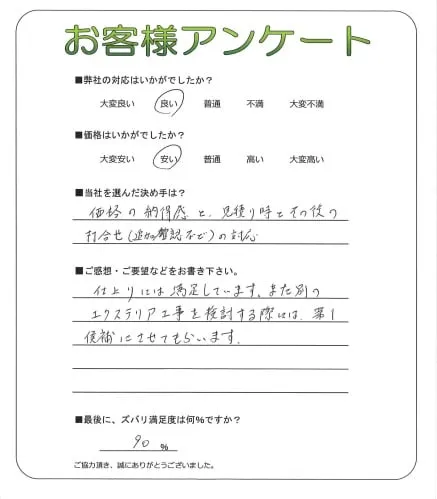 お客様アンケート
■弊社の対応はいかがでしたか？
大変良い 良い 普通 不満 大変不満
■価格はいかがでしたか？
大変安い 安い 普通 高い 大変高い
■当社を選んだ決め手は？
価格の納得感と、見積り時とその後の
打合せ（追加確認など）の対応
■ご感想・ご要望などをお書き下さい。
仕上りには満足しています。また別の
エクステリア工事を検討する際には、第1
候補にさせてもらいます。
■最後に、ズバリ満足度は何％ですか？
90 ％
ご協力頂き、誠にありがとうございました。